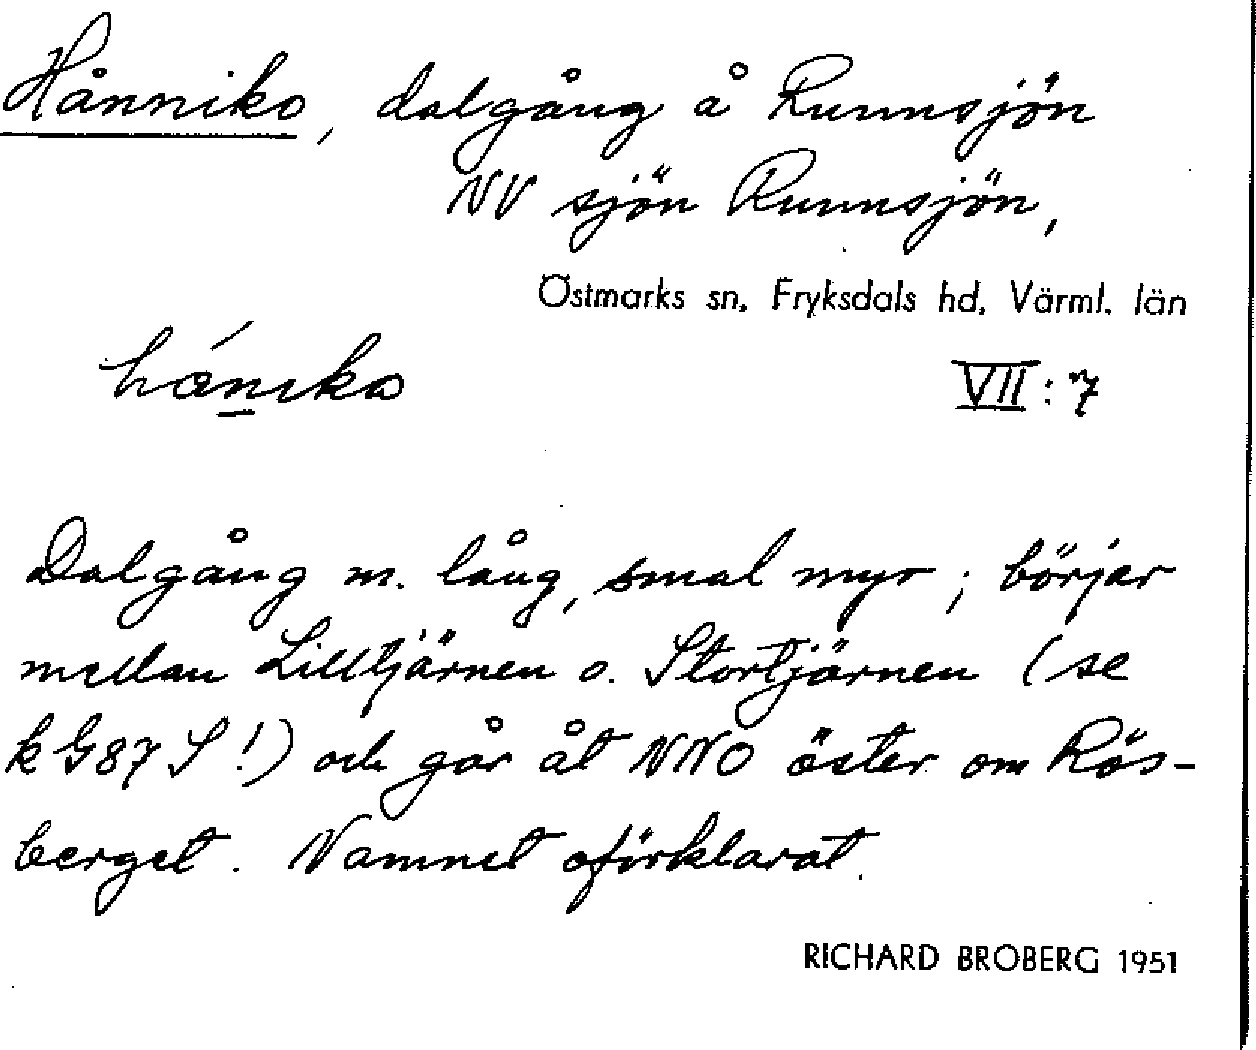 Hånniko, dalgång å Runnsjön
NV sjön Runnsjön,
Östmarks sn, Fryksdals hd, Värml. län
VII:7
Dalgång m. lång, smal myr; börjar
mellan Lilltjärnen o. Stortjärnen (se
k G87 S!) och går åt NNO öster om Rös-
berget. Namnet oförklarat.
RICHARD BROBERG 1951